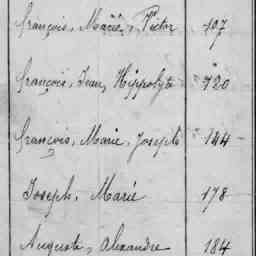 François, Marie, Victor 197
François, Jean, Hippolyte 120
François, Marie, Joseph 144
Joseph, Marie 178
Auguste, Alexandre 184